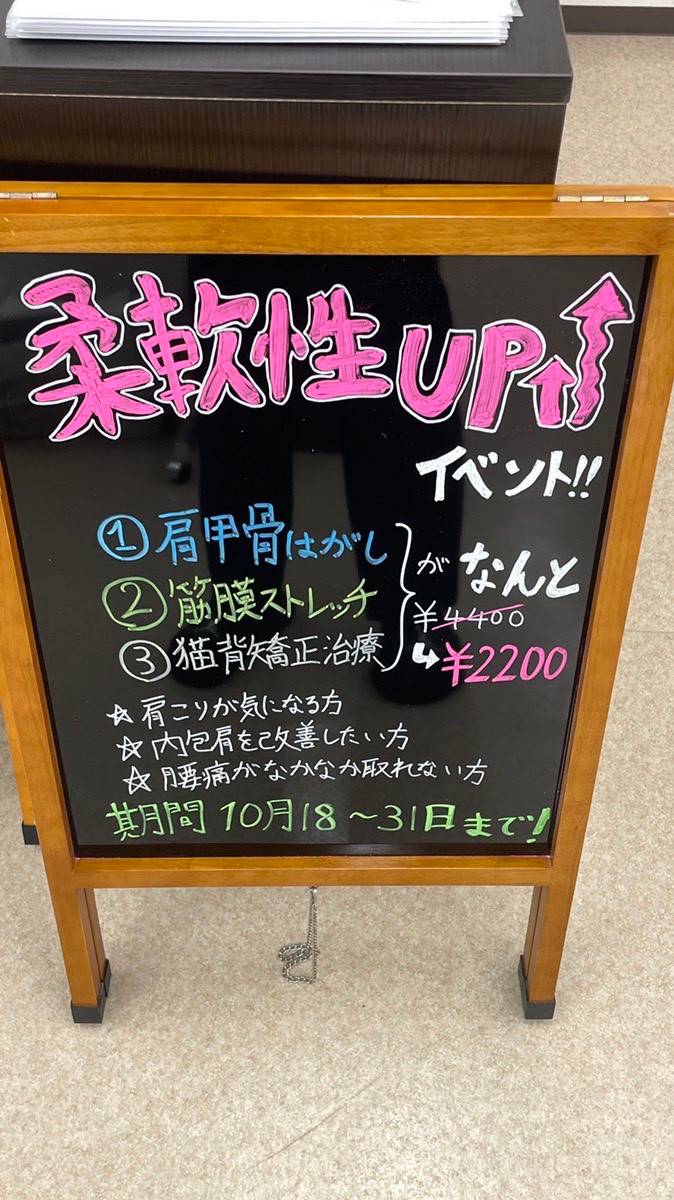 柔軟性UP↑
イベント!!
①肩甲骨はがし
②筋膜ストレッチ
③猫背矯正治療
が なんと
¥4400
↳¥2200
☆肩こりが気になる方
☆内包肩を改善したい方
☆腰痛がなかなか取れない方
期間 10月18〜31日まで!